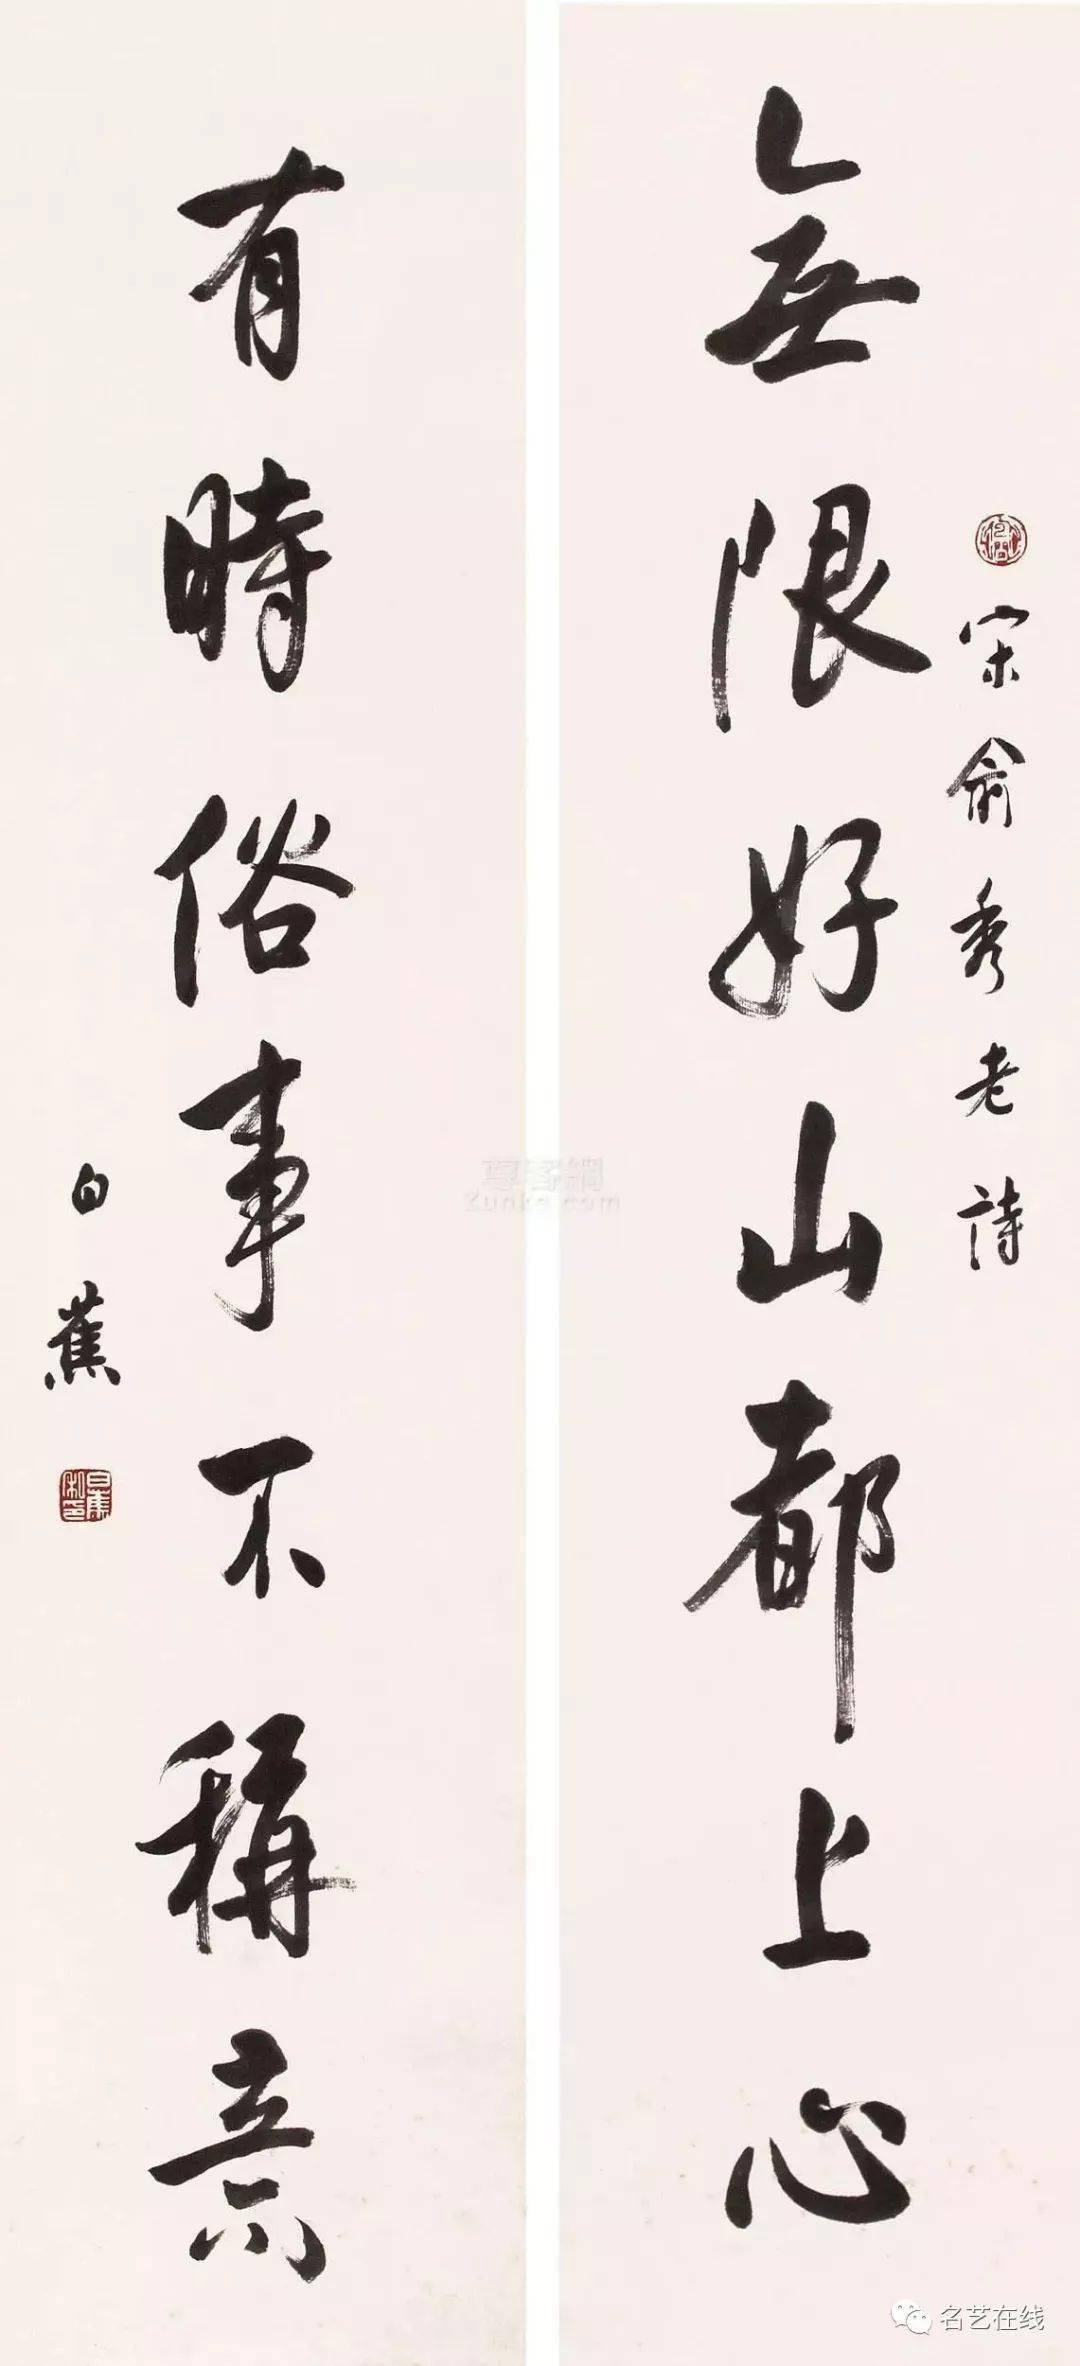 宋俞秀老詩
無限好山都上心
有時俗事不稱意
白蕉
尊客網
Zunke.com
名艺在线